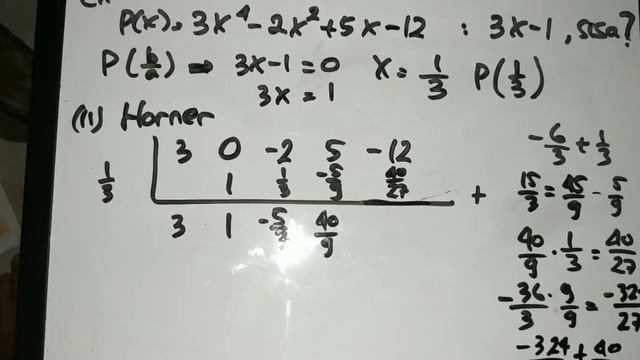 P(x) = 3x⁴ - 2x² + 5x - 12 : 3x - 1, sisa?
P(b/a) ⇒ 3x - 1 = 0 x = 1/3 P(1/3)
3x = 1
(11) Horner
3 0 -2 5 -12
1/3 1 1/3 -5/9 40/27 +
3 1 -5/3 40/9
-6/3 + 1/3
15/3 = 45/9 - 5/9
40/9 · 1/3 = 40/27
-36/3 · 9/9 = -32
27
-324 + 40